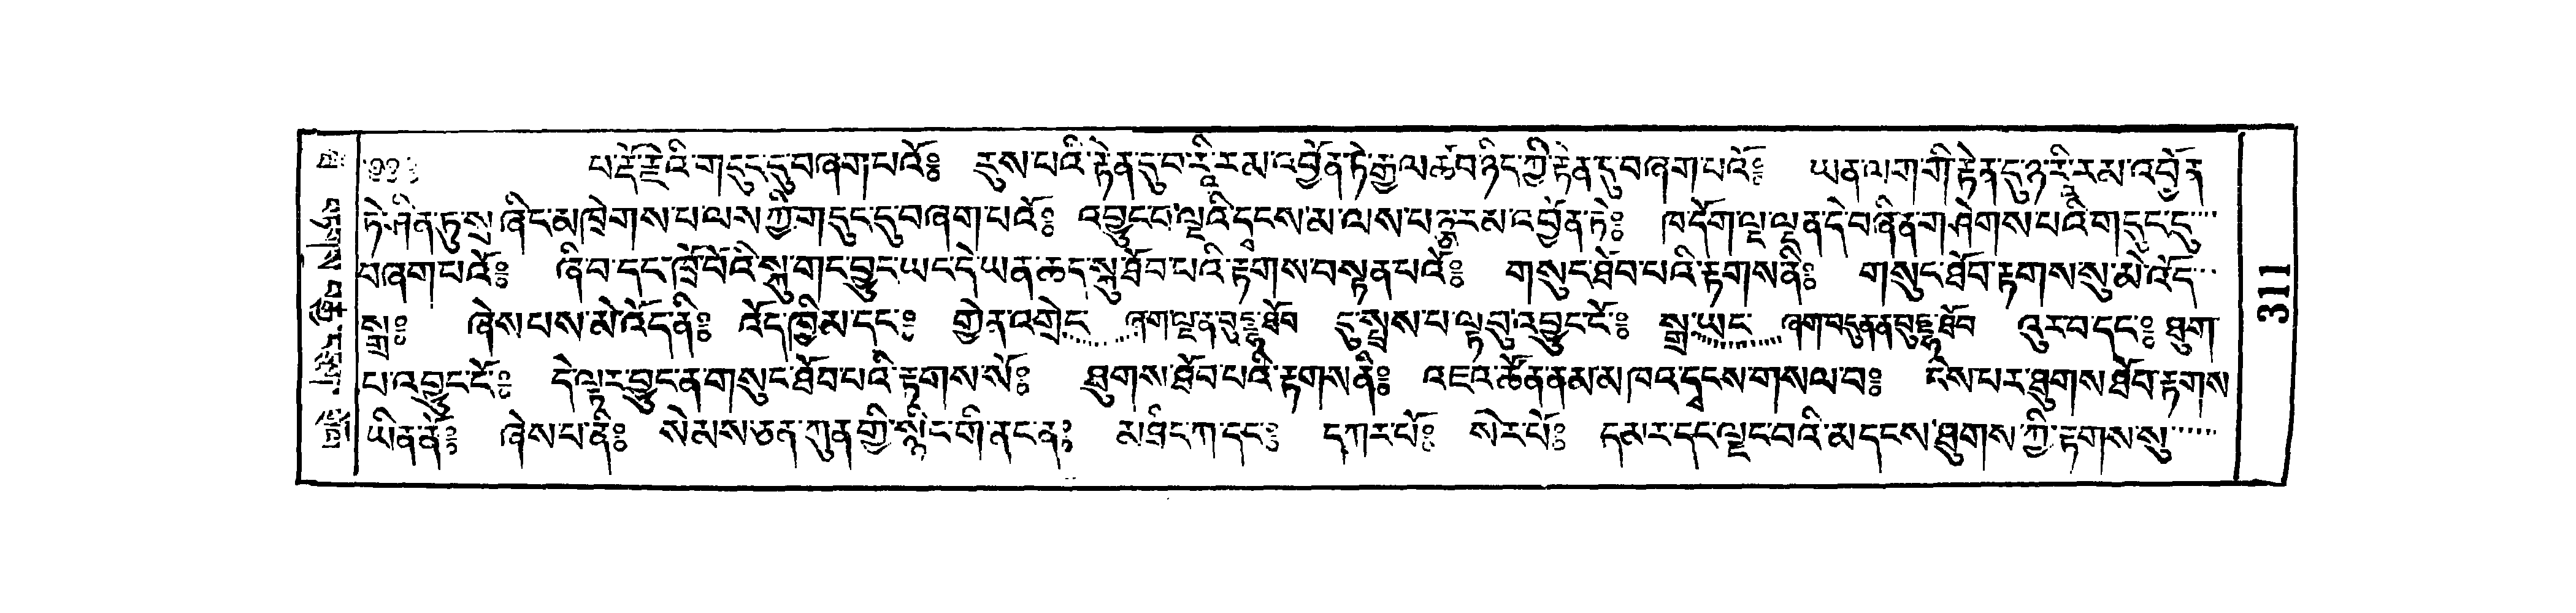 པ་རྡོ་རྗེའི་གདུང་དུ་བཞག་པའོ༔ རུས་པའི་རྟེན་དུ་བ་རཱི་རམ་འབྱོན་ཏེ་རྒྱལ་ཚབ་ཉིད་ཀྱི་རྟེན་དུ་བཞག་པའོ༔ ཡན་ལག་གི་རྟེན་དུ་ཉ་རཱི་རམ་འབྱོན
ཏེ་ཤིན་ཏུ་སྲ་ཞིང་མཁྲེགས་པ་ལས་ཀྱི་གདུང་དུ་བཞག་པའོ༔ འབྱུང་བ་ལྔའི་དྭངས་མ་ལས་པཉྩ་རམ་འབྱོན་ཏེ༔ ཁ་དོག་ལྔ་ལྡན་དེ་བཞིན་གཤེགས་པའི་གདུང་དུ
བཞག་པའོ༔ ཞི་བ་དང་ཁྲོ་བོའི་སྐུ་གང་བྱུང་ཡང་དེ་ཡན་ཆད་སྐུ་ཐོབ་པའི་རྟགས་བསྟན་པའོ༔ གསུང་ཐོབ་པའི་རྟགས་ནི༔ གསུང་ཐོབ་རྟགས་སུ་མེ་འོད
སྒྲ༔ ཞེས་པས་མེ་འོད་ནི༔ འོད་ཁྱིམ་དང་༔ གྱེན་འགྲེང་ ཞག་ལྔ་ན་བུདྡྷ་ཐོབ དུ་སྤྲས་པ་ལྟ་བུ་འབྱུང་ངོ༔ སྒྲ་ཡང་ ཞག་བདུན་ན་བུདྡྷ་ཐོབ འུར་བ་དང་༔ ཐུག་
པ་འབྱུང་ངོ༔ དེ་ལྟར་བྱུང་ན་གསུང་ཐོབ་པའི་རྟགས་སོ༔ ཐུགས་ཐོབ་པའི་རྟགས་ནི༔ འཇའ་ཚོན་ནམ་མཁའ་དྭངས་གསལ་བ༔ ངེས་པར་ཐུགས་ཐོབ་རྟགས
ཡིན་ནོ༔ ཞེས་པ་ནི༔ སེམས་ཅན་ཀུན་གྱི་སྙིང་གི་ནང་ན༔ མཐིང་ཀ་དང་༔ དཀར་པོ༔ སེར་པོ༔ དམར་དང་ལྗང་བའི་མདངས་ཐུགས་ཀྱི་རྟགས་སུ
113